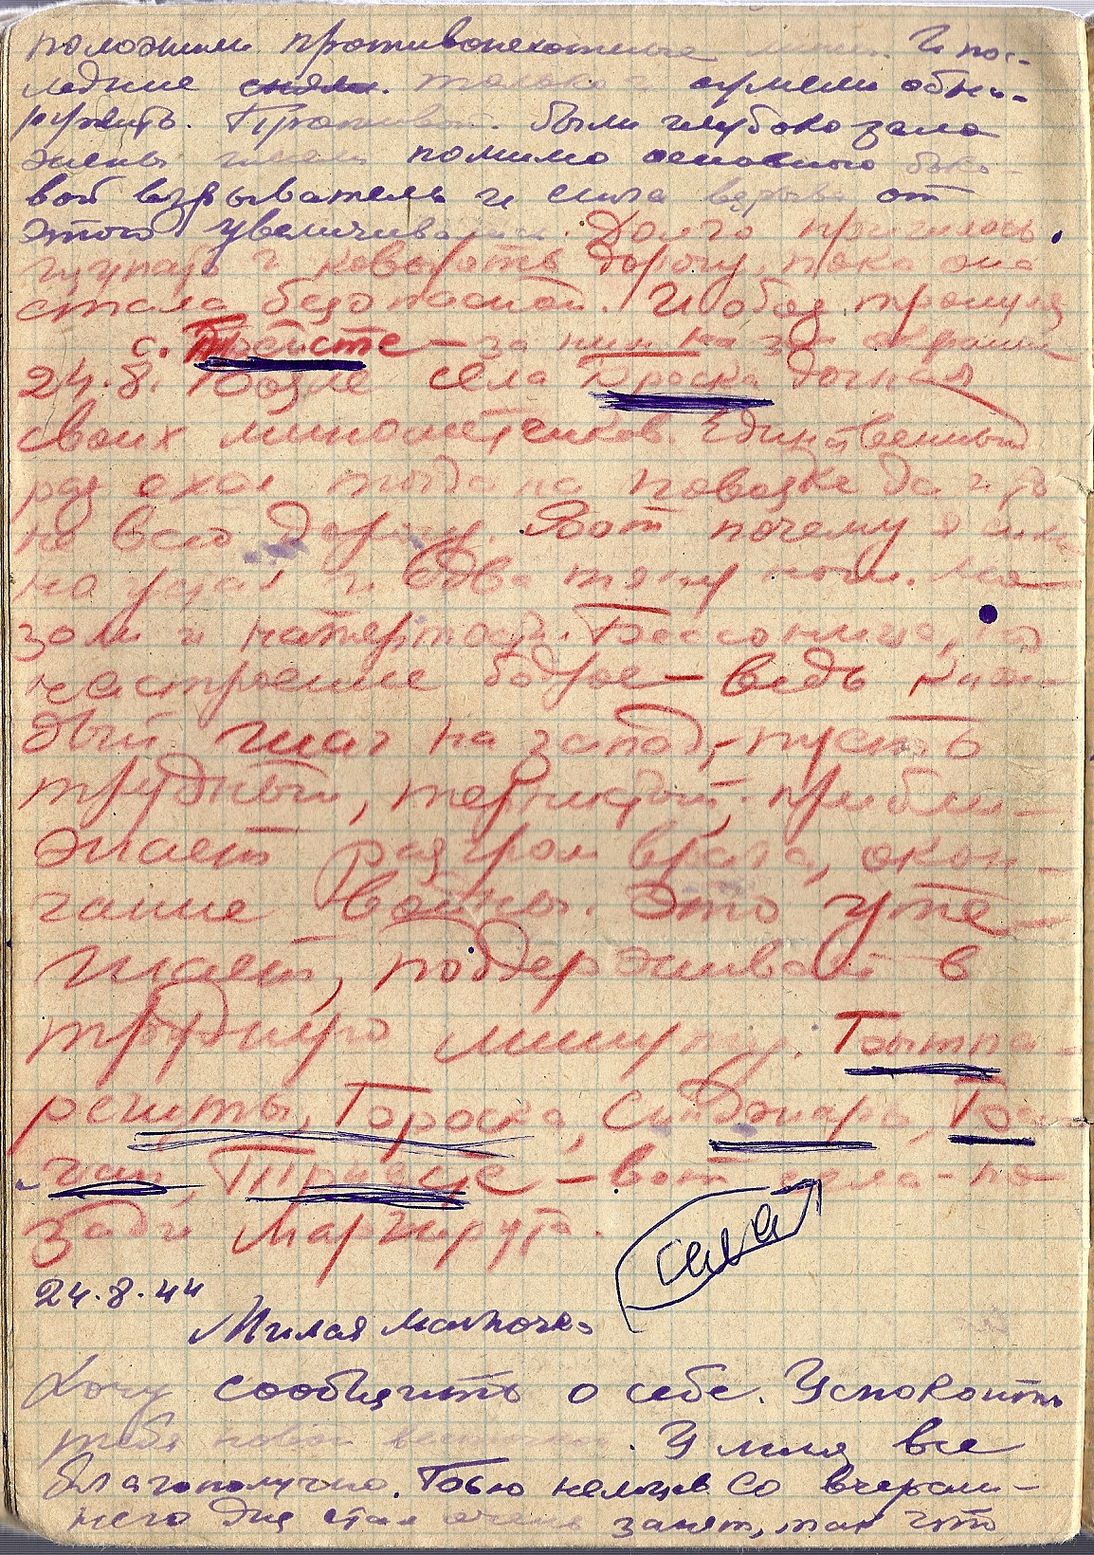 положили противопехотные мины. И пос-
ледние сняли. только сумели обна-
ружить. Противот. были глубоко зало
жены имели помимо основного боко-
вой взрыватель и сила взрыва от
этого увеличивалась. Долго пришлось
щупать и ковырять дорогу, пока она
стала безопасной. И обоз тронулся
с. Троисте - за ним на
24.8. Возле села Гороска догнал
своих минометчиков. Единственный
раз ехал тогда на повозке да и то
не всю дорогу. Вот почему я
но устал и едва тяну ноги. Мо
золи и натертости. Бессоница, но
настроение бодрое - ведь каж
дый шаг на запад, - пусть
трудный, тернистый, прибли-
жает разгром врага, окон-
чание войны. Это уте-
шает, поддерживает в
трудную минуту.
Гороска, Синджира,
- вот села - по
зади маршрута.
села
24.8.44
Милая мамочка
Хочу сообщить о себе. Успокоить
тебя новой весточкой. У меня все
благополучно. Бью немцев. Со вчераш-
него дня стал очень занят, так что